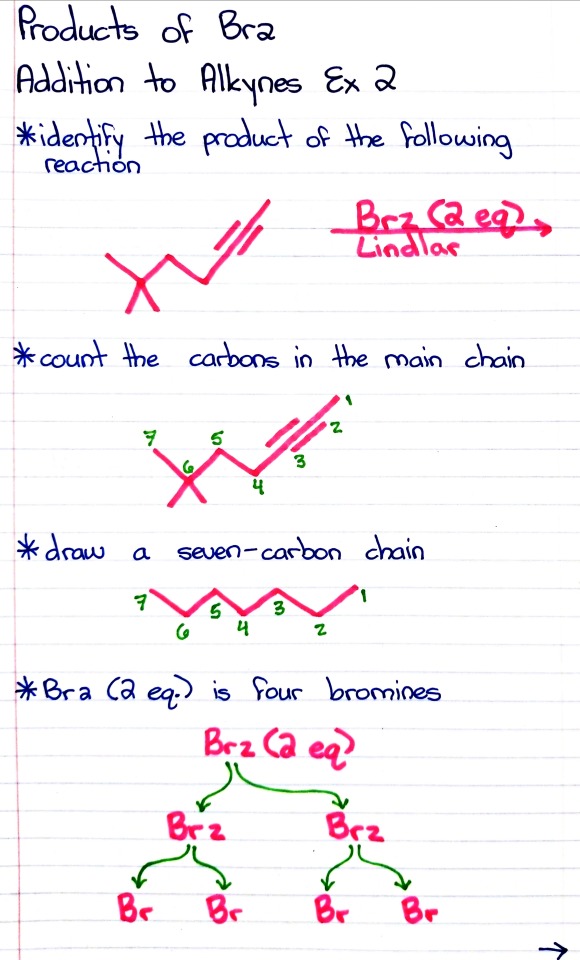 Products of Br2
Addition to Alkynes Ex 2
*identify the product of the following
reaction
Br2 (2 eq)
Lindlar
*count the carbons in the main chain
1
7
5
2
6
3
4
*draw a seven-carbon chain
7
5
3
1
6
4
2
*Br2 (2 eq.) is four bromines
Br2 (2 eq)
Br2 Br2
Br Br Br Br